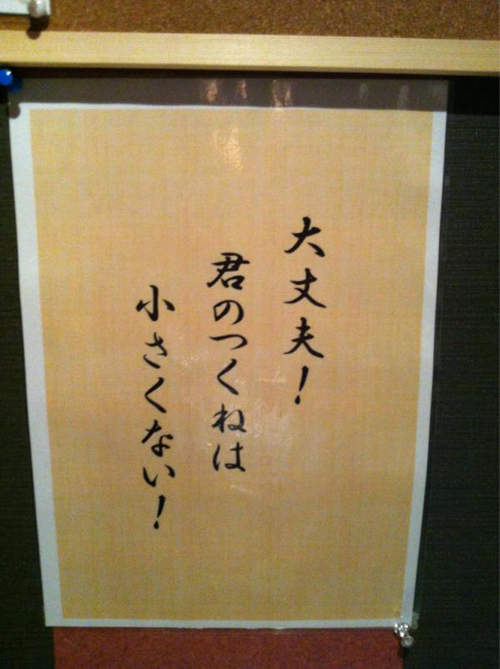 大丈夫！
君のつくねは
小さくない！